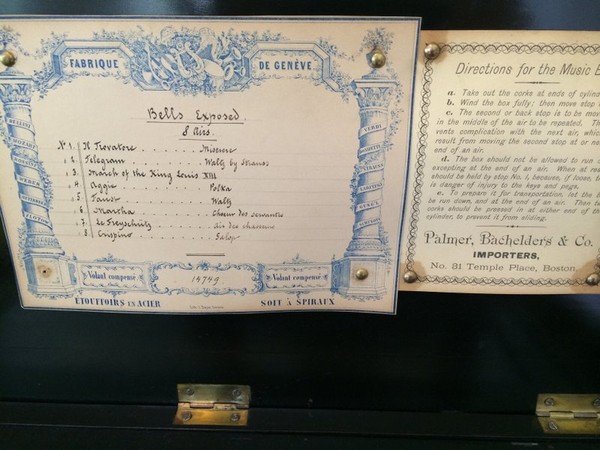 FABRIQUE DE GENÈVE
Bells Exposed
8 Airs
Nº 1. Il Trovatore . . . . . . . Miserere
" 2. Telegram . . . . . . Waltz by Strauss
" 3. March of the King Louis XIII
" 4. Aggie . . . . . . . Polka
" 5. Faust . . . . . . . Waltz
" 6. Martha . . . . . . Choeur des servantes
" 7. Le Freyschütz . . . . . . Air des chasseurs
" 8. Crispino . . . . . . . Galop
MOZART
WEBER
VERDI
Volant compensé
14749
Volant compensé
ETOUFFOIRS EN ACIER
SOIT À SPIRAUX
Directions for the Music B
a. Take out the corks at ends of cylin
b. Wind the box fully; then move stop
c. The second or back stop is to be mov
in the middle of the air to be repeated. Th
vents complication with the next air, whic
result from moving the second stop at or ne
end of an air.
d. The box should not be allowed to run
excepting at the end of an air. When at res
should be held by stop No. 1, because, if loose,
is danger of injury to the keys and pegs.
e. To prepare it for transportation, let the b
be run down, and at the end of an air. Then tw
corks should be pressed in at either end of the
cylinder, to prevent it from sliding.
Palmer, Bachelders & Co.
IMPORTERS,
No. 31 Temple Place, Boston